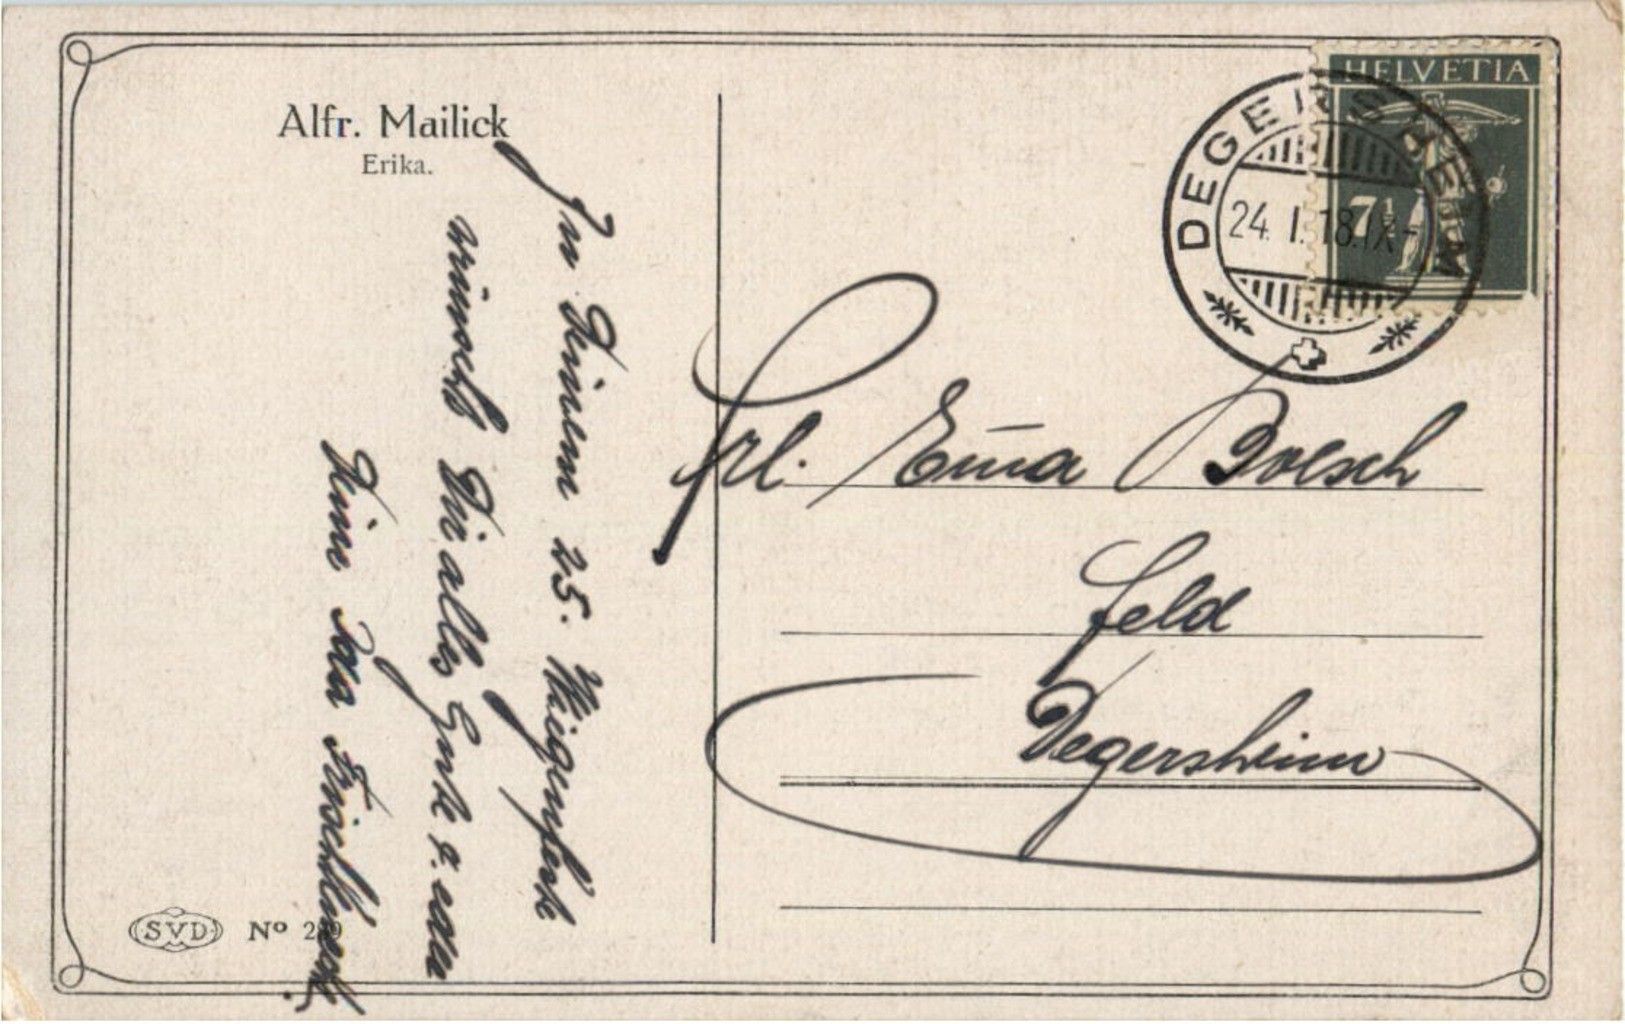 Alfr. Mailick
Erika.
Zu Deinem 25. Wiegenfeste
wünscht Dir alles Gute
Deine Ida
SVD No
HELVETIA
7½
DEGERSHEIM
24. I. 18. IX-
Frl. Em̄a Boesch
Feld
Degersheim